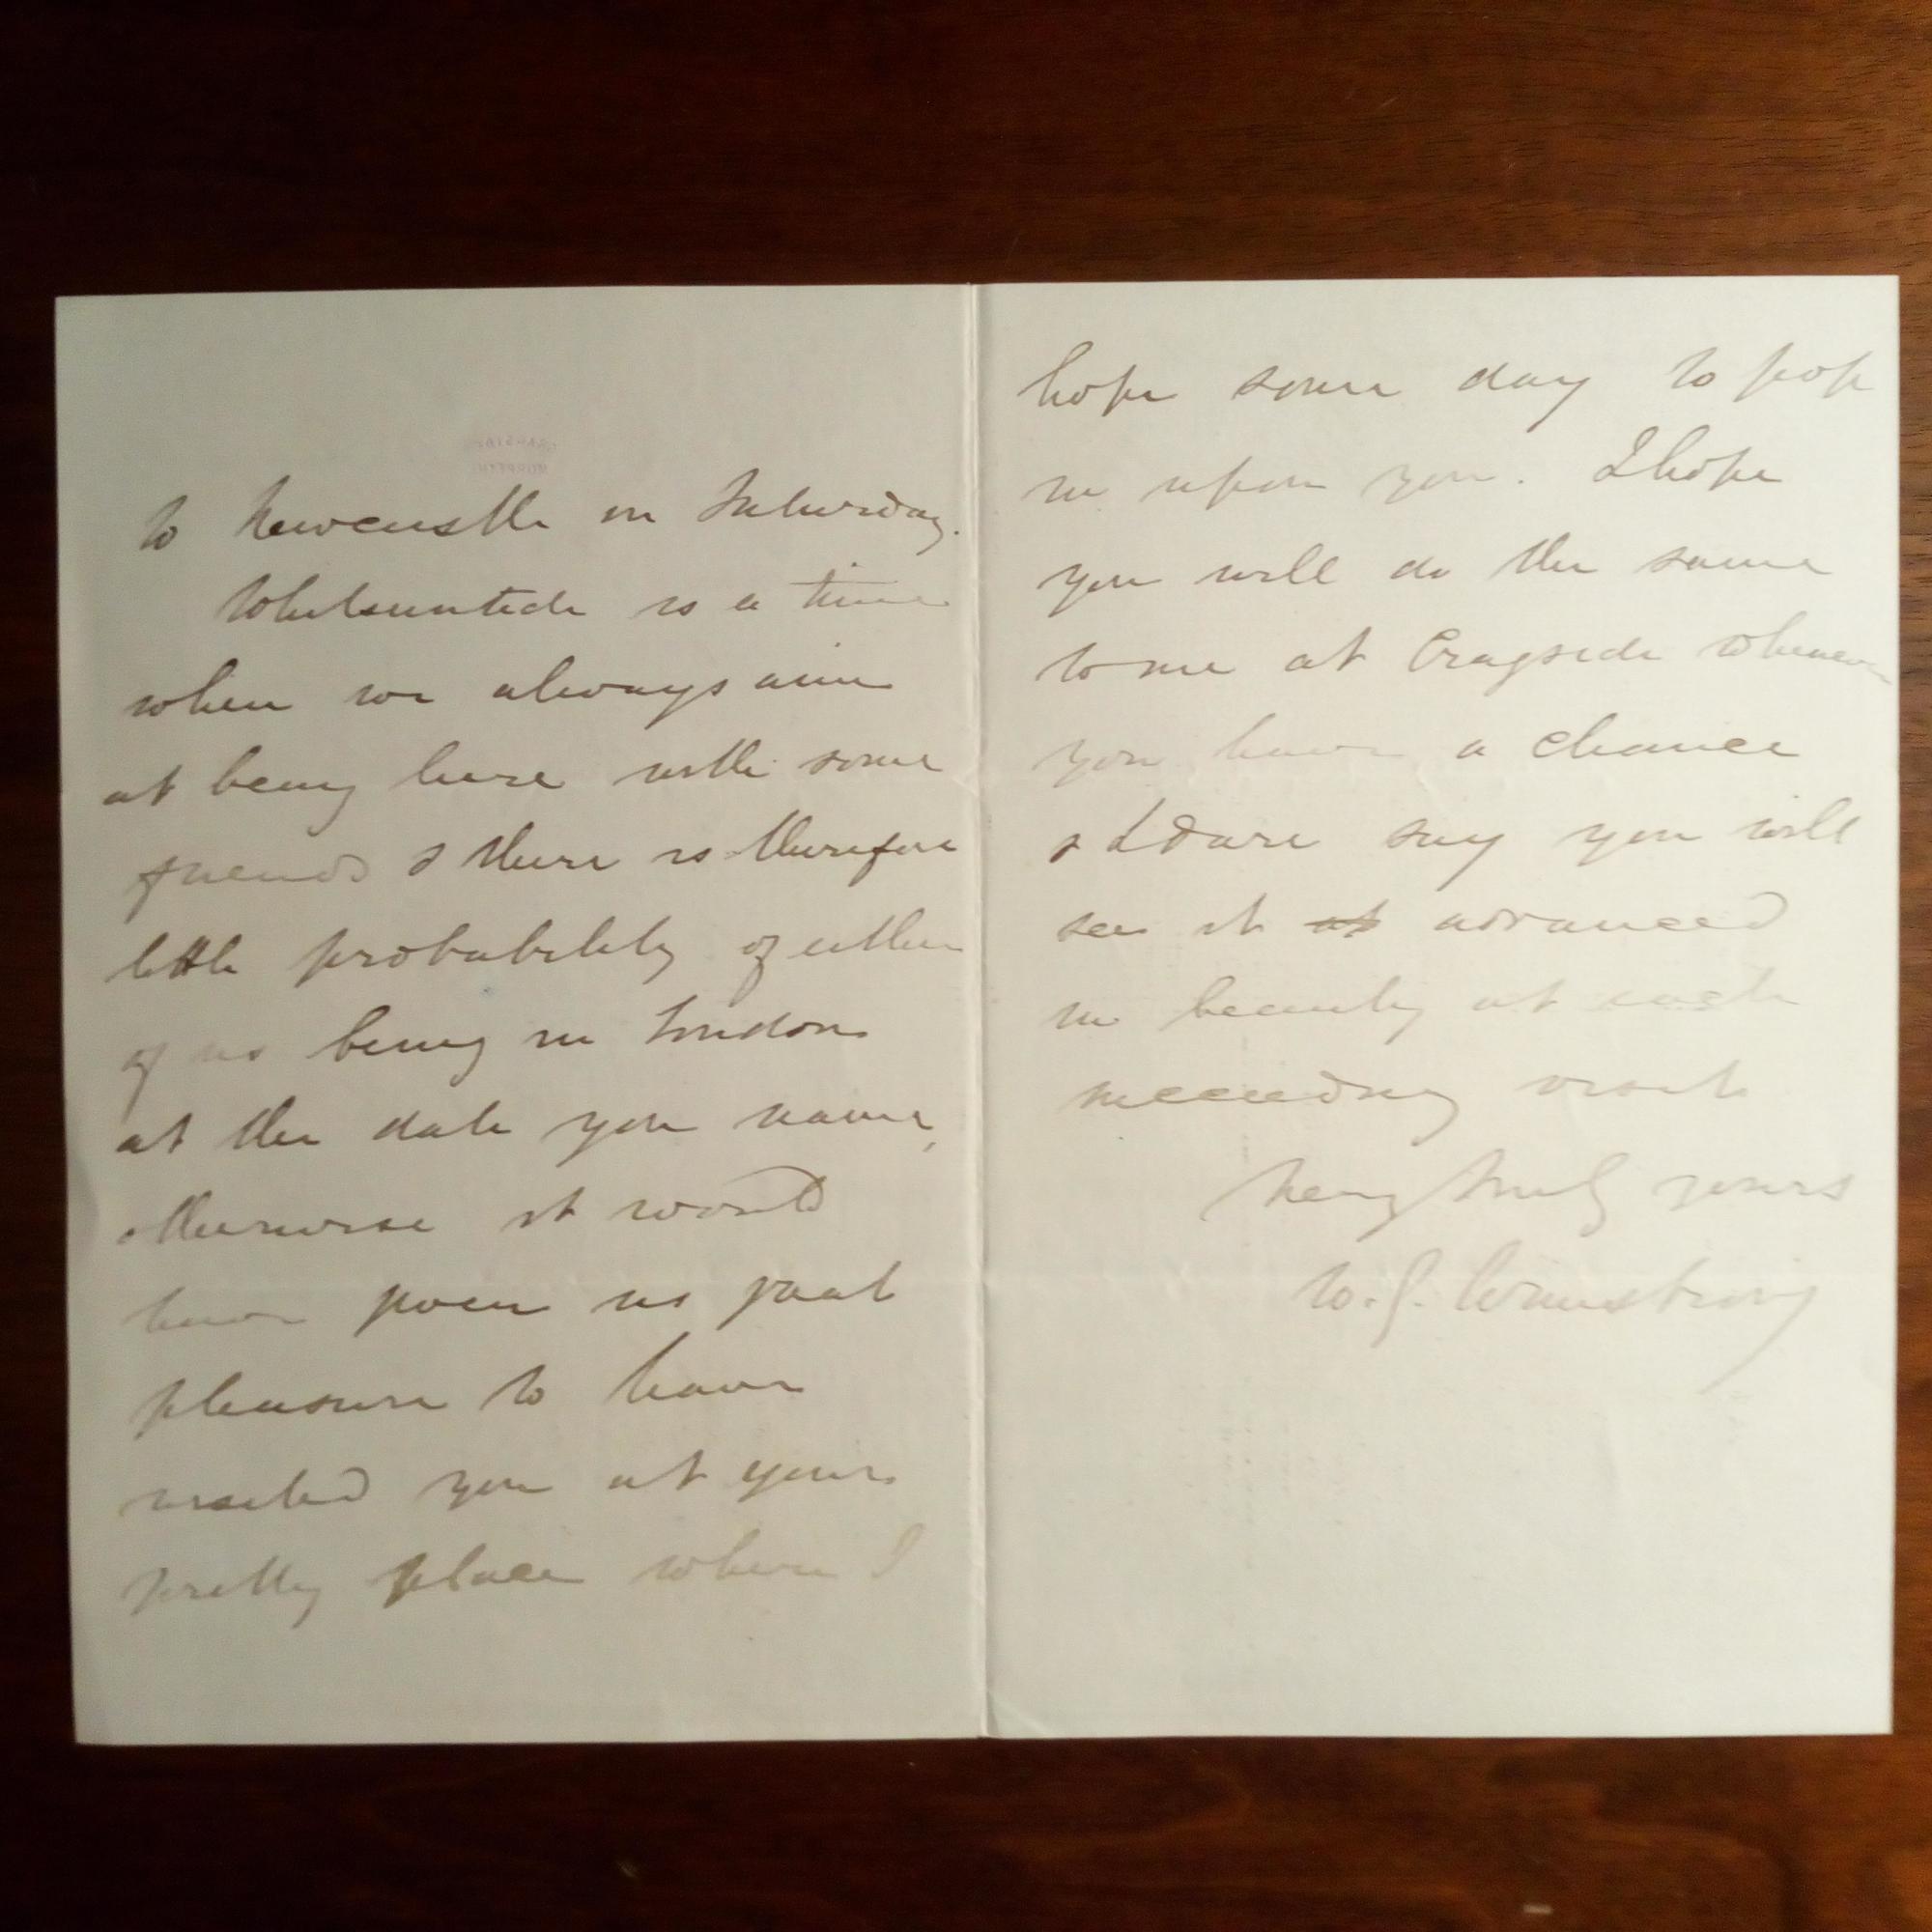 to Newcastle on Saturday.
Whitsuntide is a time
when we always aim
at being here with some
friends & there is therefore
little probability of either
of us being in London
at the date you name,
otherwise it would
have given us great
pleasure to have
visited you at your
pretty place where I
hope some day to pop
in upon you. I hope
you will do the same
to me at Cragside whenever
you have a chance
& I dare say you will
see it at advanced
in beauty at each
succeeding visit
Very truly yours
W. G. Armstrong